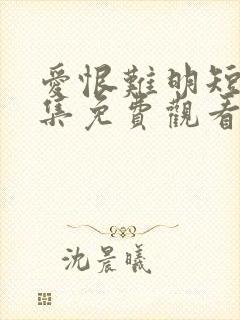 愛恨難明短
集免費觀看
沈晨曦